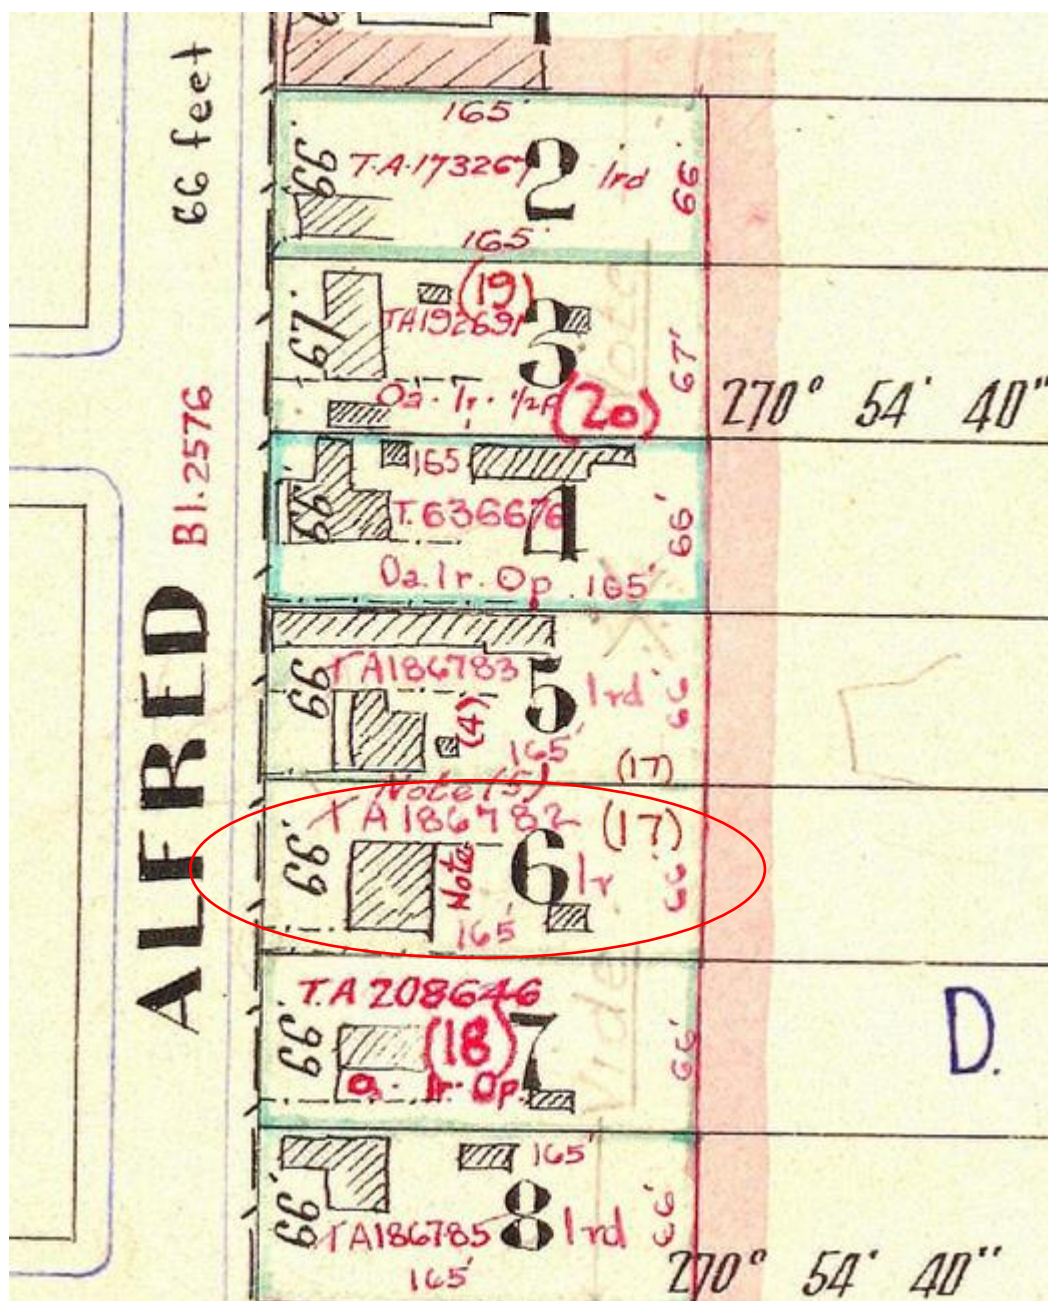 66 feet
Bl. 2576
ALFRED
165'
66'
T.A. 173267
2
1rd
66'
165'
(19)
67'
TA192691
3
67'
Oa. 1r. 1/2p
(20)
270° 54' 40"
165
66'
T. 636676
4
66'
0a. 1r. 0p.
165'
TA186783
66
5
1rd
66'
(4)
165'
(17)
Note (5)
TA186782
(17)
66'
Note
6
1r
66'
165'
T.A 208646
66'
(18)
7
66'
0a. 1r. 0p.
Vide
D.
165'
66'
TA186785
8
1rd
66'
165'
270° 54' 40"